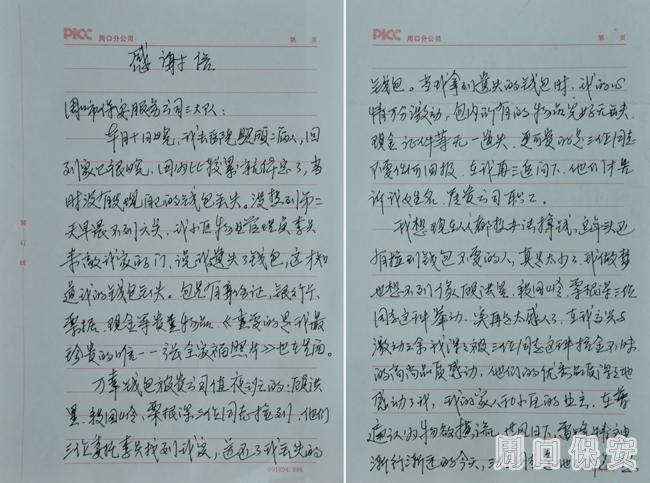 PICC 周口分公司
第 页
感谢信
周口市保安服务公司三大队：
月十日晚，我去医院照顾病人，回
到家已很晚，因为比较累就休息了，当
时没有发现自己的钱包丢失。没想到第二
天早晨不到六点，我小区物业管理员李兵
来敲我家的门，说我遗失了钱包，这才知
道我的钱包丢失。包里有身份证，银行卡，
票据，现金等贵重物品《重要的是我最
珍贵的唯一一张全家福照片》也在里面。
万幸钱包被贵公司值夜班的：顾洪
三位同志捡到，他们
三位委托李兵找到我家，送还了我丢失的
装订线
PICC 周口分公司
第 页
钱包。当我拿到遗失的钱包时，我的心
情万分激动，包内所有的物品完好无丢失
现金证件等无一遗失。更可爱的是三位同志
不要任何回报。在我再三追问下，他们才告
诉我姓名，是贵公司职工。
我想现在人人都想办法挣钱，这年头还
有捡到钱包不要的人，真是太少了，我做梦
也想不到像顾洪 三位
同志这种举动。实在太感人了。在我丢失与
激动之余我深深被三位同志这种拾金不昧
的高尚品质感动，他们的优秀品质深深地
感动了我，我的家人和小区的业主。在普
遍认为物欲横流，世风日下，雷锋精神
渐行渐远的今天，三位
周口保安